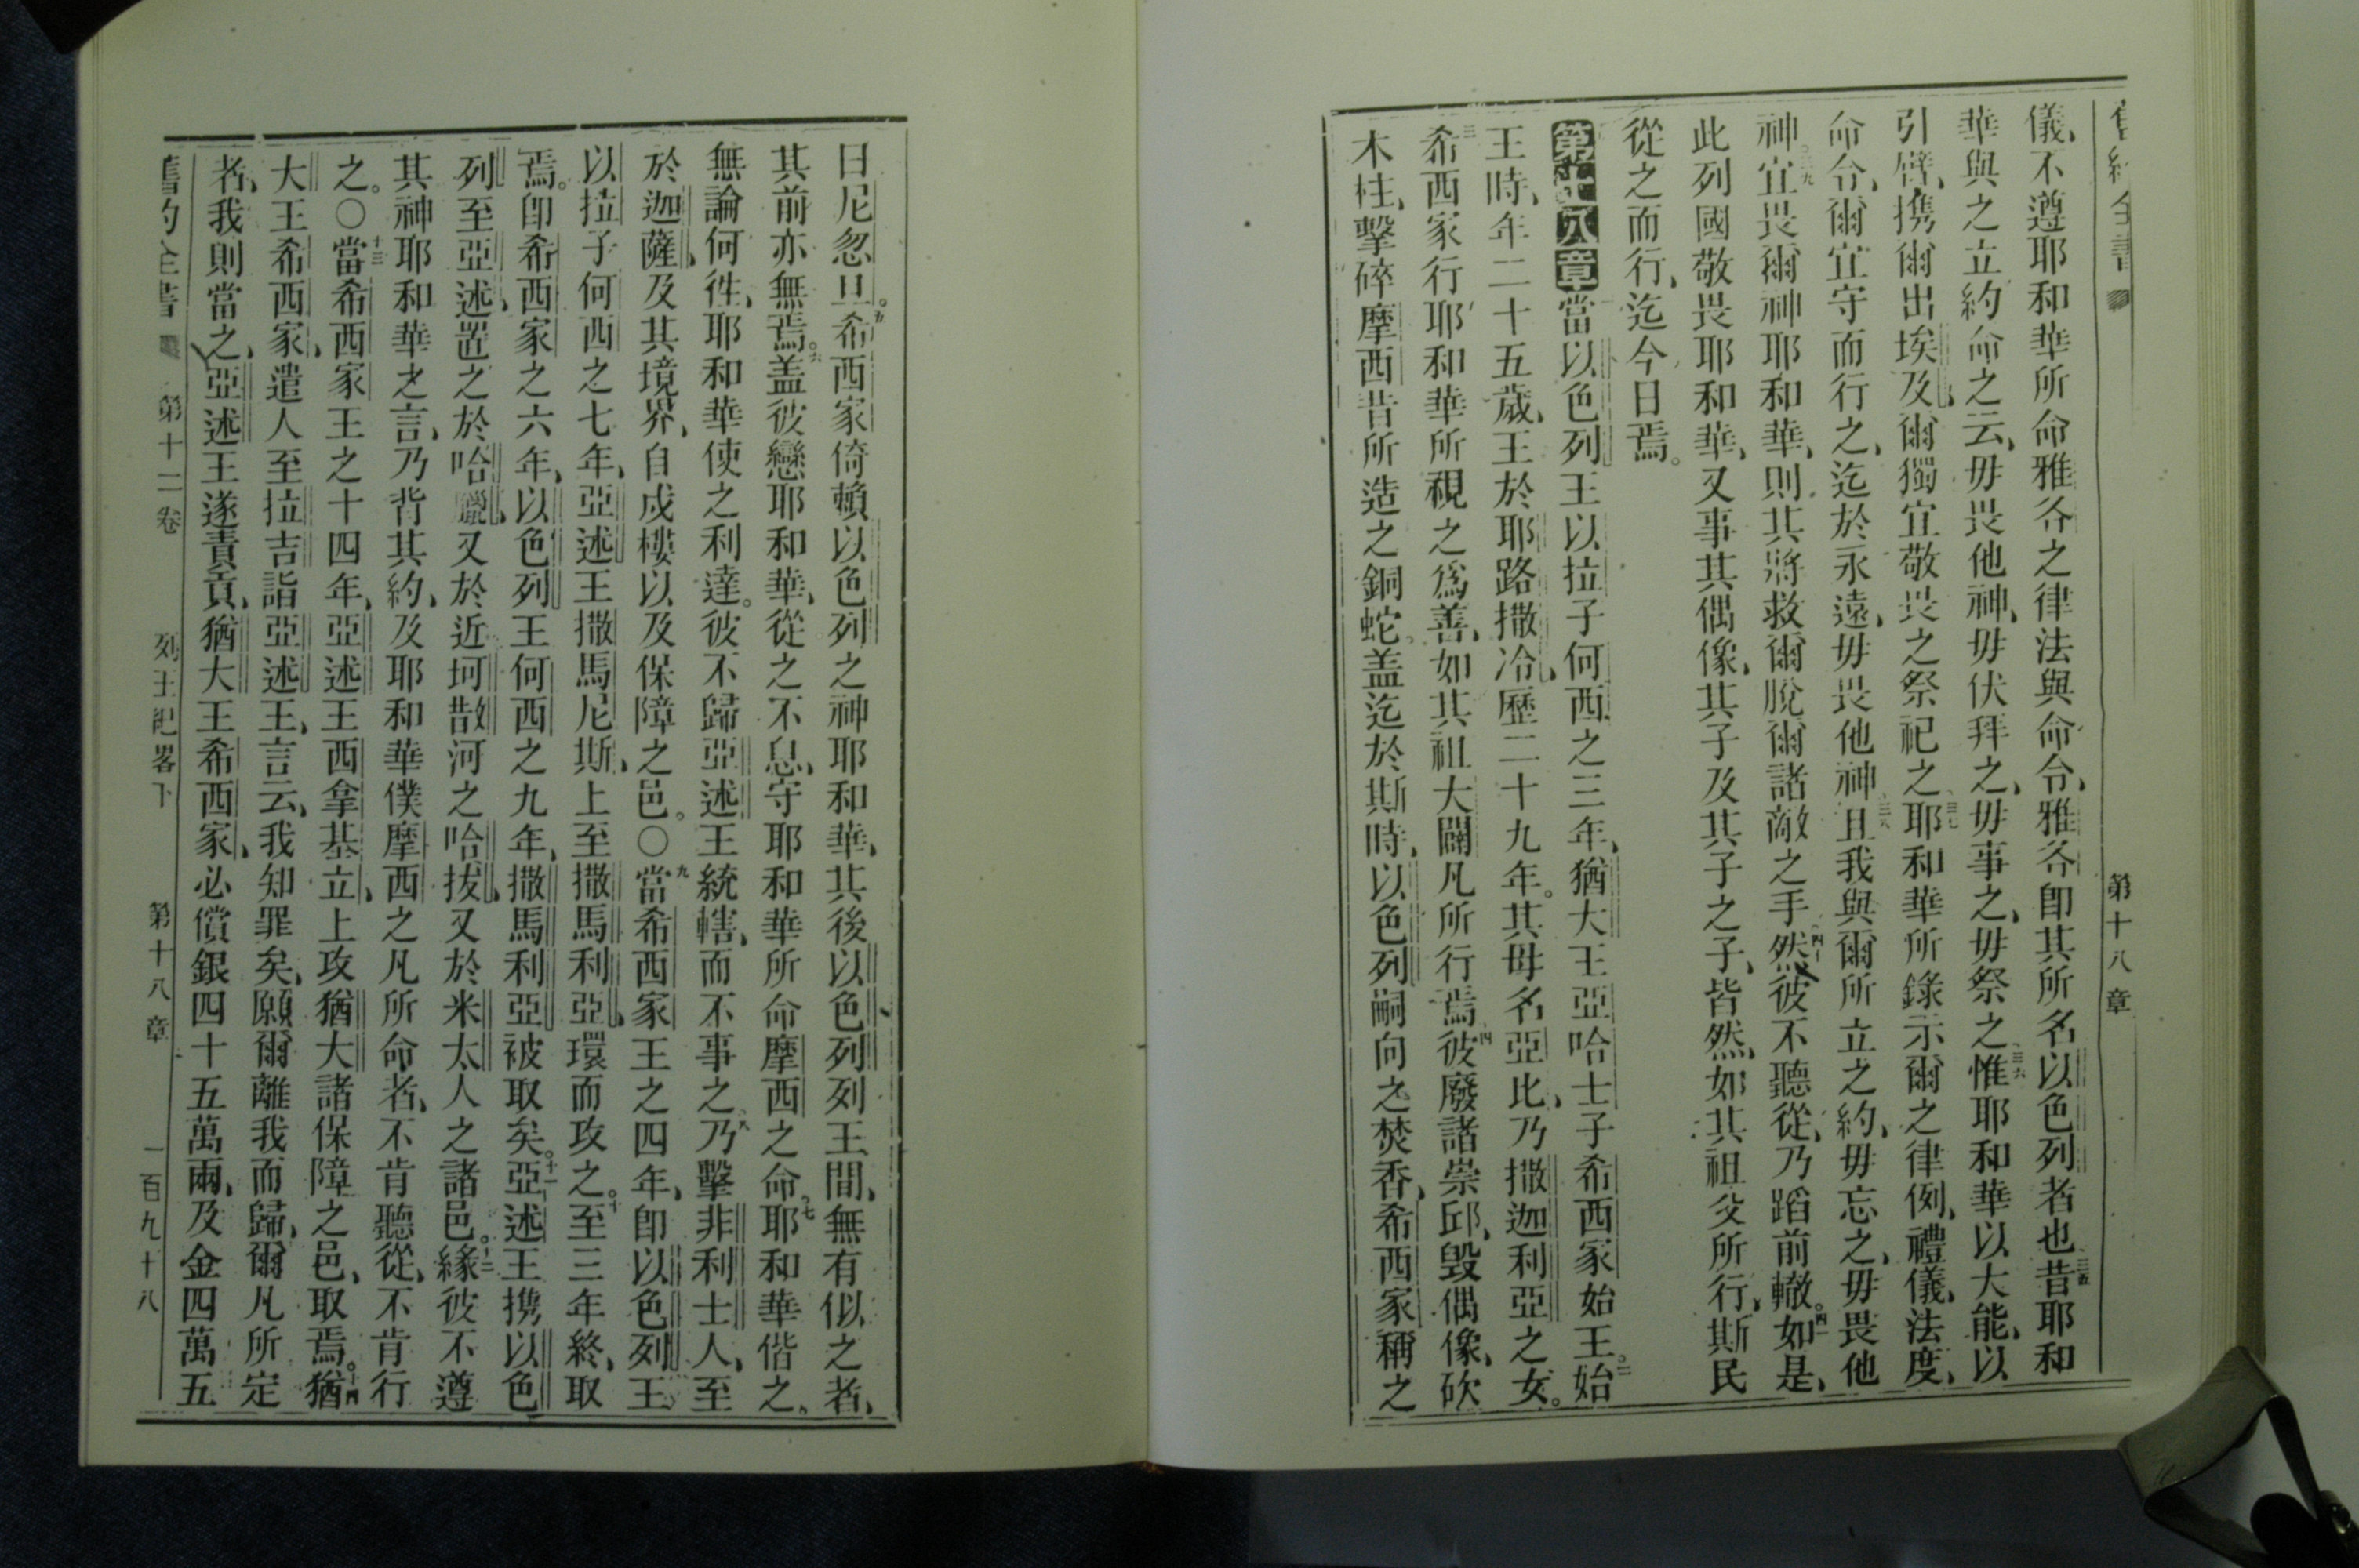 舊約全書 第十八章
儀、不遵耶和華所命雅各之律法與命令、雅各卽其所名以色列者也、三五昔耶和
華與之立約命之云、毋畏他神、毋伏拜之、毋事之、毋祭之、三六惟耶和華以大能、以
引臂、携爾出埃及、爾獨宜敬畏之祭祀之、三七耶和華所錄示爾之律例、禮儀、法度、
命令、爾宜守而行之、迄於永遠、毋畏他神、三八且我與爾所立之約、毋忘之、毋畏他
神。三九宜畏爾神耶和華、則其將救爾脫爾諸敵之手、四十然彼不聽從、乃蹈前轍。四一如是、
此列國敬畏耶和華、又事其偶像、其子及其子之子、皆然、如其祖父所行、斯民
從之而行、迄今日焉。
第十八章 一當以色列王以拉子何西之三年、猶大王亞哈士子希西家始王。二始
王時、年二十五歲、王於耶路撒冷、歷二十九年。其母名亞比、乃撒迦利亞之女。
三希西家行耶和華所視之爲善、如其祖大闢凡所行焉、四彼廢諸崇邱、毀偶像、砍
木柱、擊碎摩西昔所造之銅蛇。盖迄於斯時、以色列嗣向之焚香、希西家稱之
曰尼忽旦。五希西家倚賴以色列之神耶和華、其後以色列列王間、無有似之者、
其前亦無焉。六盖彼戀耶和華、從之不息、守耶和華所命摩西之命。七耶和華偕之、
無論何徃、耶和華使之利達。彼不歸亞述王統轄、而不事之、八乃擊非利士人、至
於迦薩、及其境界、自戍樓以及保障之邑。○九當希西家王之四年、卽以色列王
以拉子何西之七年、亞述王撒馬尼斯、上至撒馬利亞、環而攻之。十至三年終、取
焉。卽希西家之六年、以色列王何西之九年、撒馬利亞被取矣。十一亞述王携以色
列至亞述、置之於哈臘、又於近坷散河之哈拔、又於米太人之諸邑。十二緣彼不遵
其神耶和華之言、乃背其約、及耶和華僕摩西之凡所命者、不肯聽從、不肯行
之。○十三當希西家王之十四年、亞述王西拿基立、上攻猶大諸保障之邑、取焉。十四猶
大王希西家、遣人至拉吉、詣亞述王、言云、我知罪矣、願爾離我而歸、爾凡所定
者、我則當之、亞述王遂責貢、猶大王希西家、必償銀四十五萬兩、及金四萬五
舊約全書 第十二卷 列王紀畧下 第十八章 一百九十八